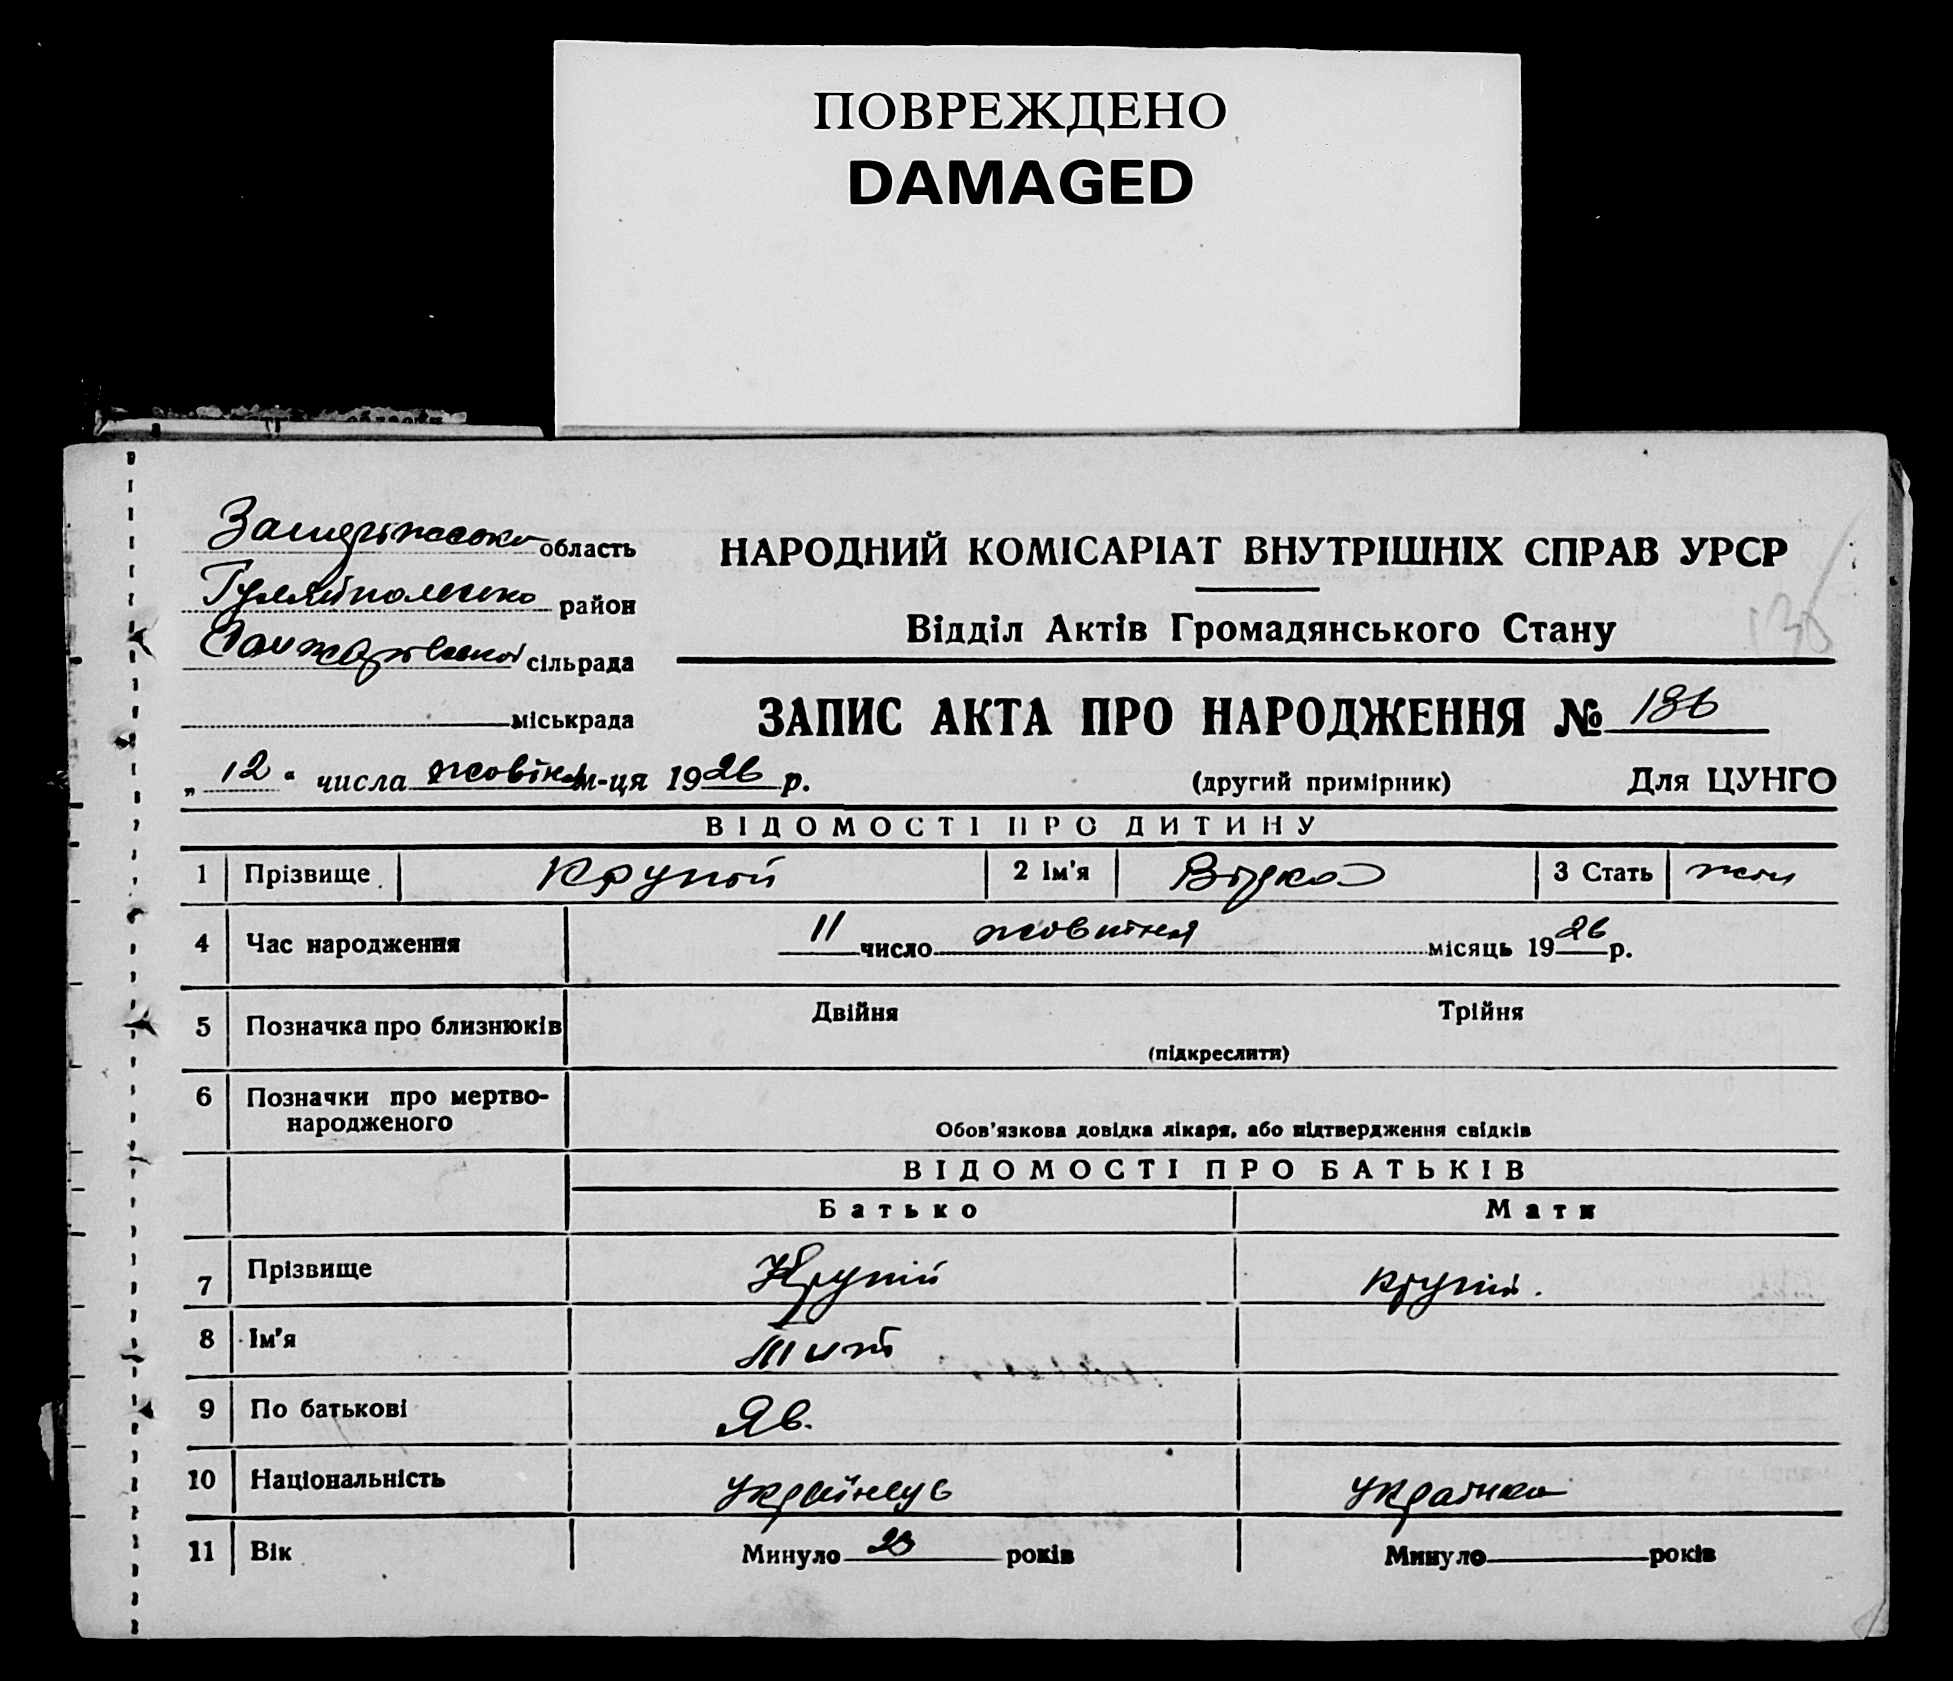 ПОВРЕЖДЕНО
DAMAGED
область
Гуляйпольсько район
сільрада
міськрада
НАРОДНИЙ КОМІСАРІАТ ВНУТРІШНІХ СПРАВ УРСР
Відділ Актів Громадянського Стану
136
ЗАПИС АКТА ПРО НАРОДЖЕННЯ № 136
„ 12 “ числа м-ця 1926 р.
(другий примірник) Для ЦУНГО
ВІДОМОСТІ ПРО ДИТИНУ
1 Прізвище Крупій 2 Ім'я 3 Стать жін
4 Час народження 11 число жовтня місяць 1926 р.
5 Позначка про близнюків Двійня Трійня
(підкреслити)
6 Позначки про мертво-
народженого
Обов'язкова довідка лікаря, або підтвердження свідків
ВІДОМОСТІ ПРО БАТЬКІВ
Батько Мати
7 Прізвище Крупій Крупій.
8 Ім'я Тит
9 По батькові Яв.
10 Національність українець українка
11 Вік Минуло 23 років Минуло років